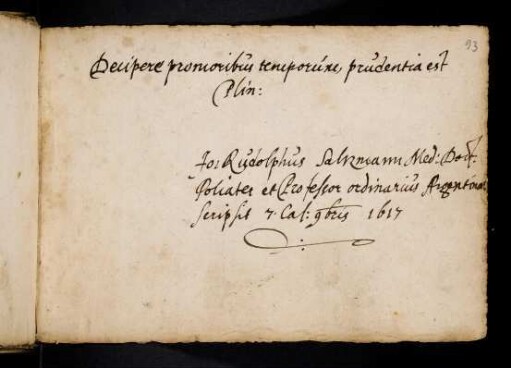 93
Decipere pro moribus temporum, prudentia est
Plin:
Jo: Rudolphus Saltzmann Med: Doct:
Poliater et Professor ordinarius Argentinae
scripsit 7. Cal: 9bris 1617